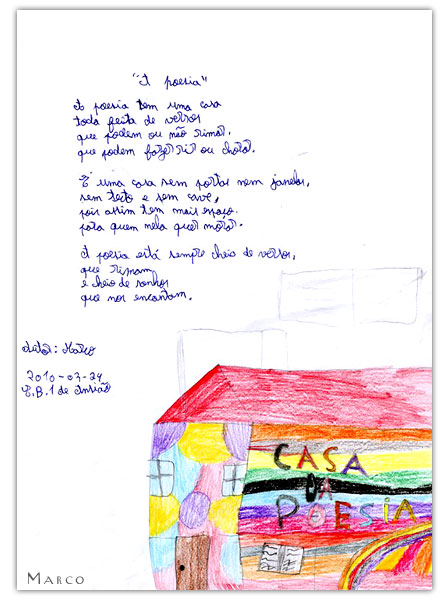 "A poesia"
A poesia tem uma casa
toda feita de versos
que podem ou não rimar,
que podem fazer rir ou chorar.
É uma casa sem portas nem janelas,
sem teto e sem
pois assim tem mais espaço
para quem nela quer morar.
A poesia está sempre cheia de versos,
que rimam
e cheio de sonhos
que nos encantam.
autor: Marco
2010-03-24
E.B.1 de Ansião
CASA
DA
POESIA
MARCO